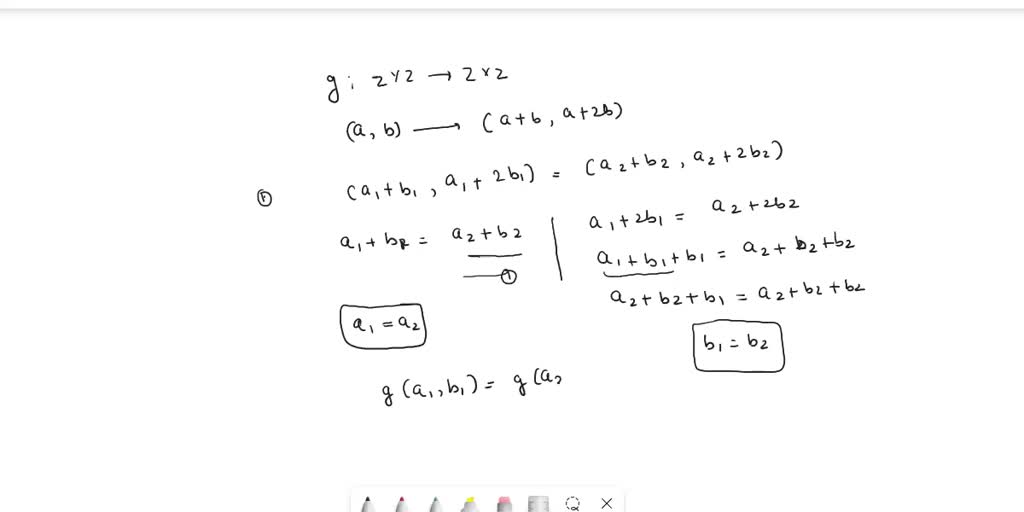 g : Z×Z → Z×Z
(a, b) ⟶ (a+b, a+2b)
① (a₁+b₁, a₁+2b₁) = (a₂+b₂, a₂+2b₂)
a₁+b₁ = a₂+b₂
①
a₁ = a₂
a₁+2b₁ = a₂+2b₂
a₁+b₁+b₁ = a₂+b₂+b₂
a₂+b₂+b₁ = a₂+b₂+b₂
b₁ = b₂
g(a₁,b₁) = g(a₂